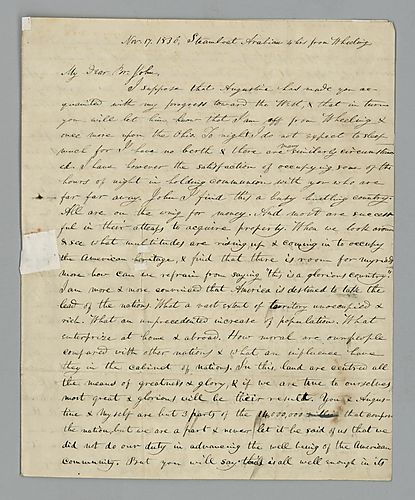 Nov. 17. 1836, Steamboat Arabian 4 hrs from Wheeling
My Dear Br. John,
I suppose that Augustine has made you ac-
quainted with my progress toward the West, & that in turn
you will let him know that I am off from Wheeling &
once more upon the Ohio. To night I do not expect to sleep
much for I have no berth & there are many similarly circumstanc-
ed. I have however the satisfaction of occupying some of the
hours of night in holding communion with you who are
far far away. John I find this a busy bustling country.
All are on the wing for money. And most are success-
ful in their attempts to acquire property. When we look around
& see what multitudes are rising up & coming in to occupy
the American heritage, & find that there is room for myriads
more how can we refrain from saying "this is a glorious country".
I am more & more convinced that America is destined to take the
lead of the nations. What a vast extent of territory unoccupied &
rich. What an unprecedented increase of population. What
enterprize at home & abroad. How moral are our people
compared with other nations & what an influence have
they in the cabinet of nations. In this land are centred all
the means of greatness & glory, & if we are true to ourselves
most great & glorious will be their result. You & Augus-
tine & myself are but 3 parts of the 14,000,000 that compose
the nation, but we are a part & never let it be said of us that we
did not do our duty in advancing the well being of the American
Community. But you will say this is all well enough in its